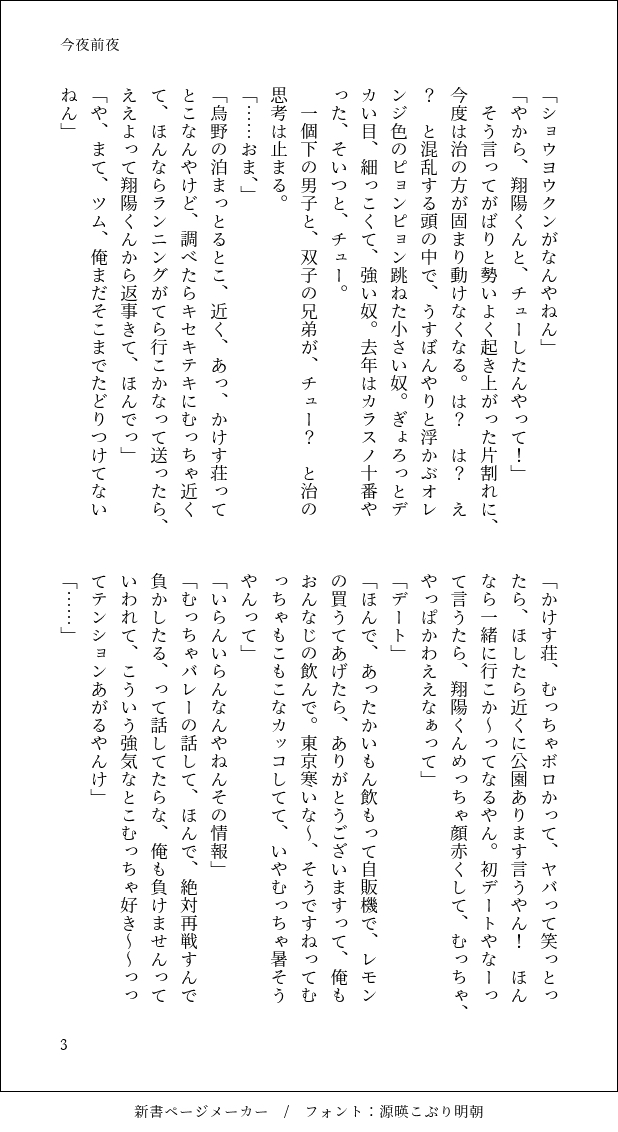 今夜前夜
「ショウヨウクンがなんやねん」
「やから、翔陽くんと、チューしたんやって！」
　そう言ってがばりと勢いよく起き上がった片割れに、
今度は治の方が固まり動けなくなる。は？　は？　え
？　と混乱する頭の中で、うすぼんやりと浮かぶオレ
ンジ色のピョンピョン跳ねた小さい奴。ぎょろっとデ
カい目、細っこくて、強い奴。去年はカラスノ十番や
った、そいつと、チュー。
　一個下の男子と、双子の兄弟が、チュー？　と治の
思考は止まる。
「……おま、」
「烏野の泊まっとるとこ、近く、あっ、かけす荘って
とこなんやけど、調べたらキセキテキにむっちゃ近く
て、ほんならランニングがてら行こかなって送ったら、
ええよって翔陽くんから返事きて、ほんでっ」
「や、まて、ツム、俺まだそこまでたどりつけてない
ねん」
「かけす荘、むっちゃボロかって、ヤバって笑っとっ
たら、ほしたら近くに公園あります言うやん！　ほん
なら一緒に行こか〜ってなるやん。初デートやなーっ
て言うたら、翔陽くんめっちゃ顔赤くして、むっちゃ、
やっぱかわええなぁって」
「デート」
「ほんで、あったかいもん飲もって自販機で、レモン
の買うてあげたら、ありがとうございますって、俺も
おんなじの飲んで。東京寒いな〜、そうですねってむ
っちゃもこもこなカッコしてて、いやむっちゃ暑そう
やんって」
「いらんいらんなんやねんその情報」
「むっちゃバレーの話して、ほんで、絶対再戦すんで
負かしたる、って話してたらな、俺も負けませんって
いわれて、こういう強気なとこむっちゃ好き〜〜っっ
てテンションあがるやんけ」
「……」
3
新書ページメーカー　/　フォント：源暎こぶり明朝